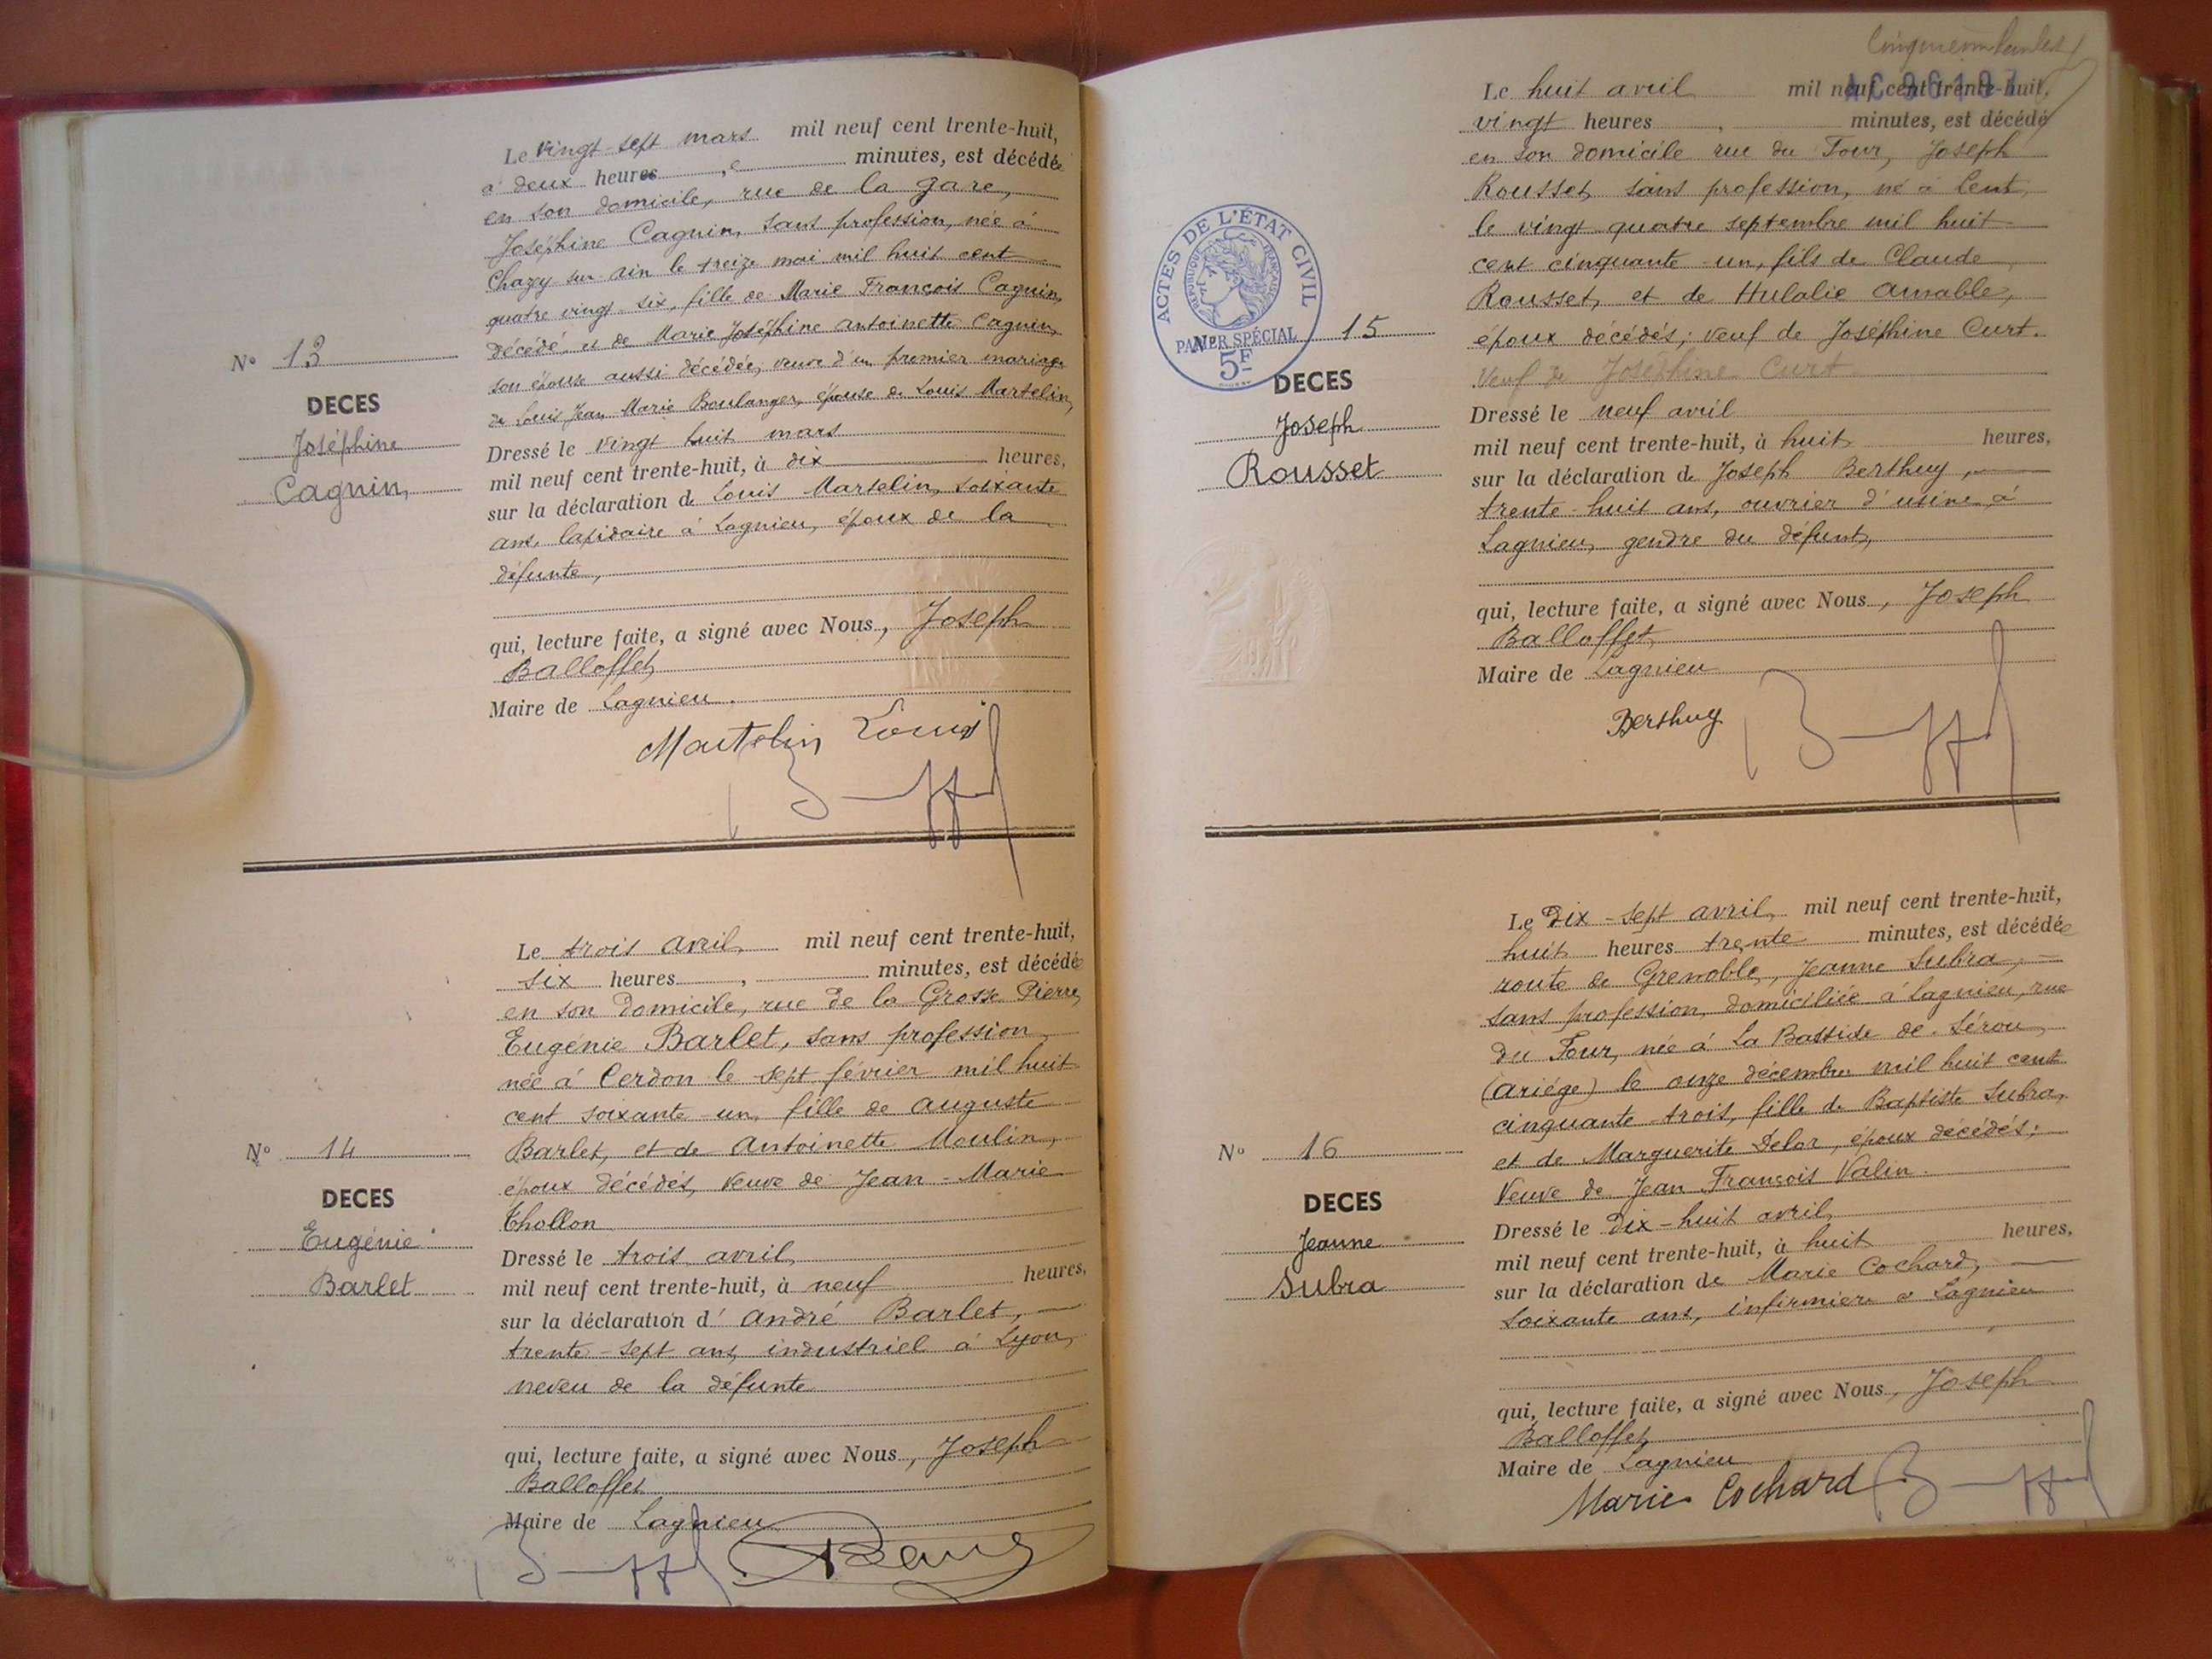 Le vingt-sept mars mil neuf cent trente-huit,
à deux heures , e minutes, est décédée
en son domicile, rue de la gare,
Joséphine Cagnin, sans profession, née à
Chazey sur Ain le treize mai mil huit cent
quatre vingt six, fille de Marie François Cagnin,
décédé, et de Marie Joséphine Antoinette Cagnin,
son épouse aussi décédée, veuve d'un premier mariage
de Louis Jean Marie Boulanger, épouse de Louis Martelin,
Nº 13
DECES
Joséphine
Cagnin
Dressé le vingt huit mars
mil neuf cent trente-huit, à dix heures,
sur la déclaration de Louis Martelin, soixante
ans, lapidaire à Lagnieu, époux de la
défunte,
qui, lecture faite, a signé avec Nous, Joseph
Balloffet,
Maire de Lagnieu.
Martelin Louis
Le trois avril, mil neuf cent trente-huit,
six heures , minutes, est décédée
en son domicile, rue de la Grosse Pierre,
Eugénie Barlet, sans profession,
née à Cerdon le sept février mil huit
cent soixante-un, fille de Auguste
Barlet, et de Antoinette Moulin,
époux décédés, veuve de Jean-Marie
Chollon
Nº 14
DECES
Eugénie
Barlet
Dressé le trois avril,
mil neuf cent trente-huit, à neuf heures,
sur la déclaration d'André Barlet,
trente-sept ans, industriel à Lyon,
neveu de la défunte
qui, lecture faite, a signé avec Nous, Joseph
Balloffet
Maire de Lagnieu
Le huit avril mil neuf cent trente-huit,
vingt heures , minutes, est décédé
en son domicile rue du Four, Joseph
Rousset, sans profession, né à Lent,
le vingt quatre septembre mil huit
cent cinquante-un, fils de Claude
Rousset, et de Hulalie Amable,
époux décédés; veuf de Joséphine Curt.
Veuf de Joséphine Curt
ACTES DE L'ÉTAT CIVIL
RÉPUBLIQUE FRANÇAISE
PAPIER SPÉCIAL
5F
Nº 15
DECES
Joseph
Rousset
Dressé le neuf avril
mil neuf cent trente-huit, à huit heures,
sur la déclaration de Joseph Berthuy,
trente-huit ans, ouvrier d'usine, à
Lagnieu, gendre du défunt,
qui, lecture faite, a signé avec Nous, Joseph
Balloffet,
Maire de Lagnieu
Berthuy
Le dix-sept avril, mil neuf cent trente-huit,
huit heures trente minutes, est décédée
route de Grenoble, Jeanne Subra,
sans profession, domiciliée à Lagnieu, rue
du Four, née à La Bastide de Sérou,
(Ariége) le onze décembre mil huit cent
cinquante-trois, fille de Baptiste Subra,
et de Marguerite Delor, époux décédés;
Veuve de Jean François Valin
Nº 16
DECES
Jeanne
Subra
Dressé le dix-huit avril,
mil neuf cent trente-huit, à huit heures,
sur la déclaration de Marie Cochard,
soixante ans, infirmière à Lagnieu
qui, lecture faite, a signé avec Nous, Joseph
Balloffet,
Maire de Lagnieu
Marie Cochard